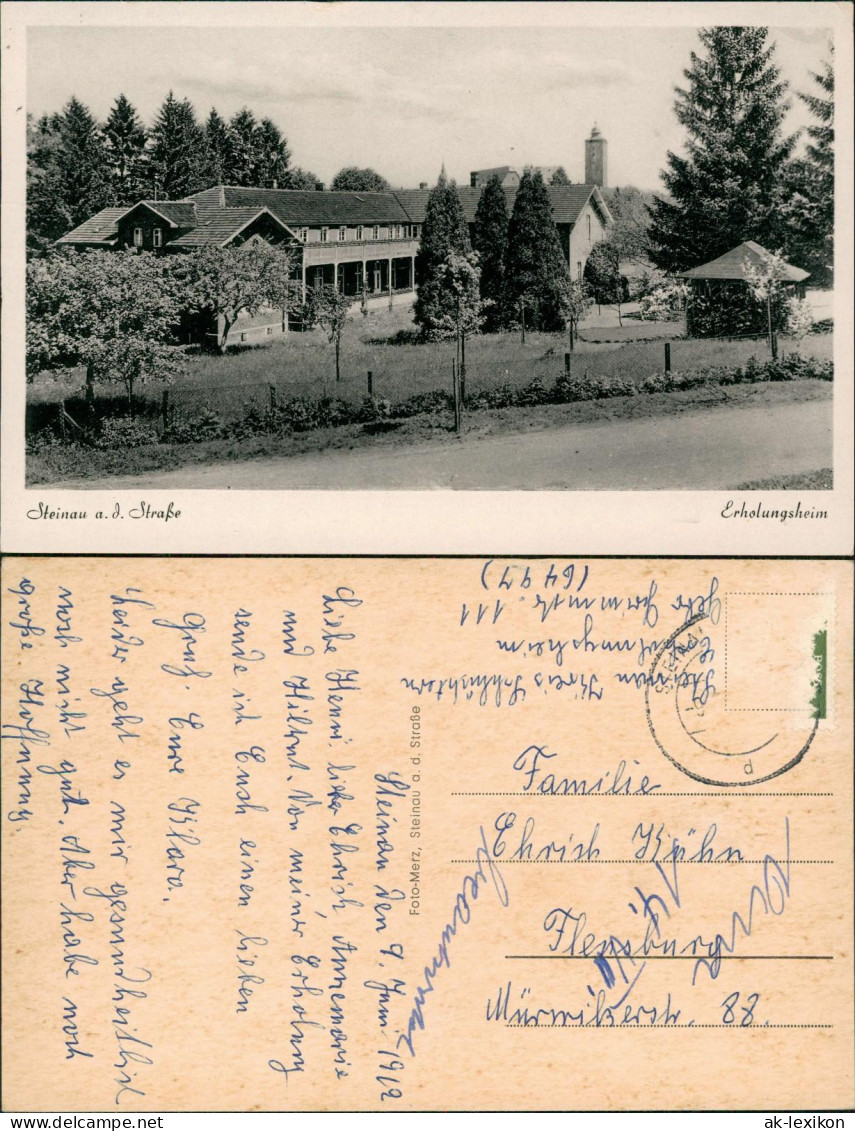 Steinau a. d. Straße
Erholungsheim
Steinau den 9. Juni 1972
Liebe Henni! lieber Ehrich, Annemarie
und Hiltrut. Von meiner Erholung
sende ich Euch einen lieben
Gruß. Eure Klara.
Leider geht es mir gesundheitlich
noch nicht gut. Aber habe noch
große Hoffnung.
Foto-Merz, Steinau a. d. Straße
Steinau Kreis Schlüchtern
Erholungsheim
111
(6497)
Familie
Ehrich Kühn
Flensburg
Mürwikerstr. 88.
beantwortet
ak-lexikon